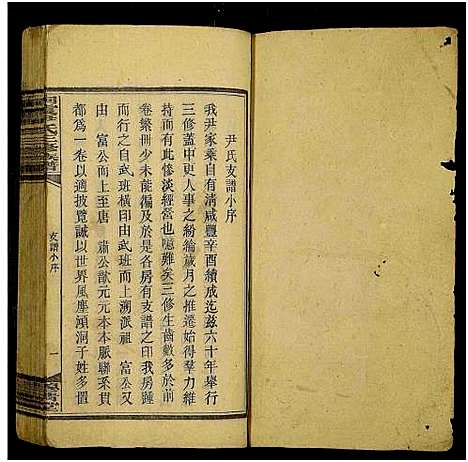 尹氏支譜小序
我尹家乘自有清咸豐辛酉續成迄茲六十年舉行
三修蓋中更人事之紛綸歲月之推遷始得羣力維
持而有此慘淡經營也噫難矣三修生齒數多於前
卷繁冊少未能偏及於是各房有支譜之印我房踵
而行之自武班橫印由武班而上溯派祖 富公又
由 富公而上至唐 肅公猷元元本本脈聯系貫
都為一卷以適披覽誠以世界風塵澒洞子姓多價
支譜小序
一